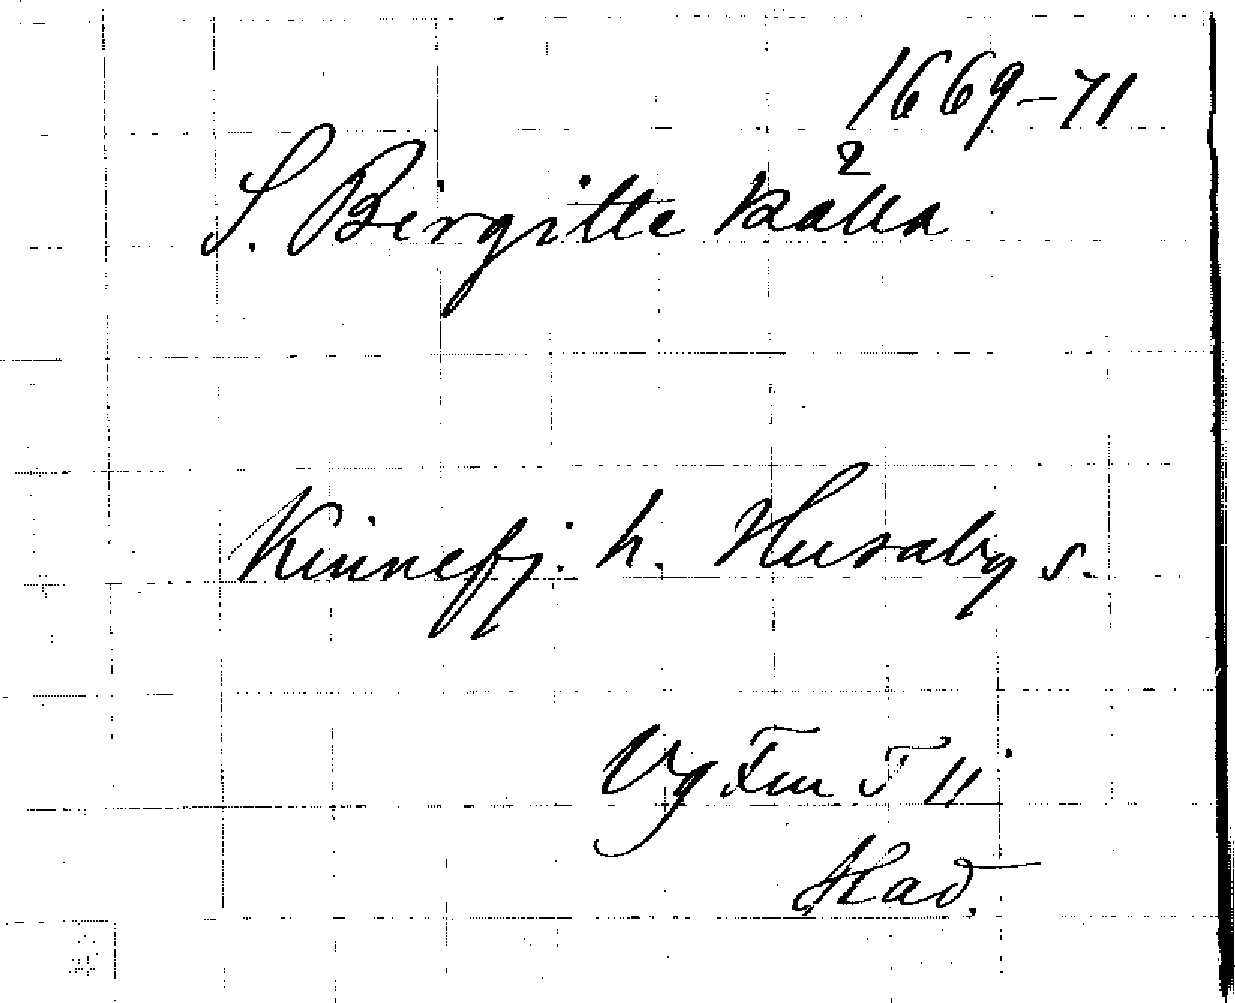 1669-71
S. Birgitte kålla
Kinnefj. h. Husaby s.
Vg Fm T II
Had.